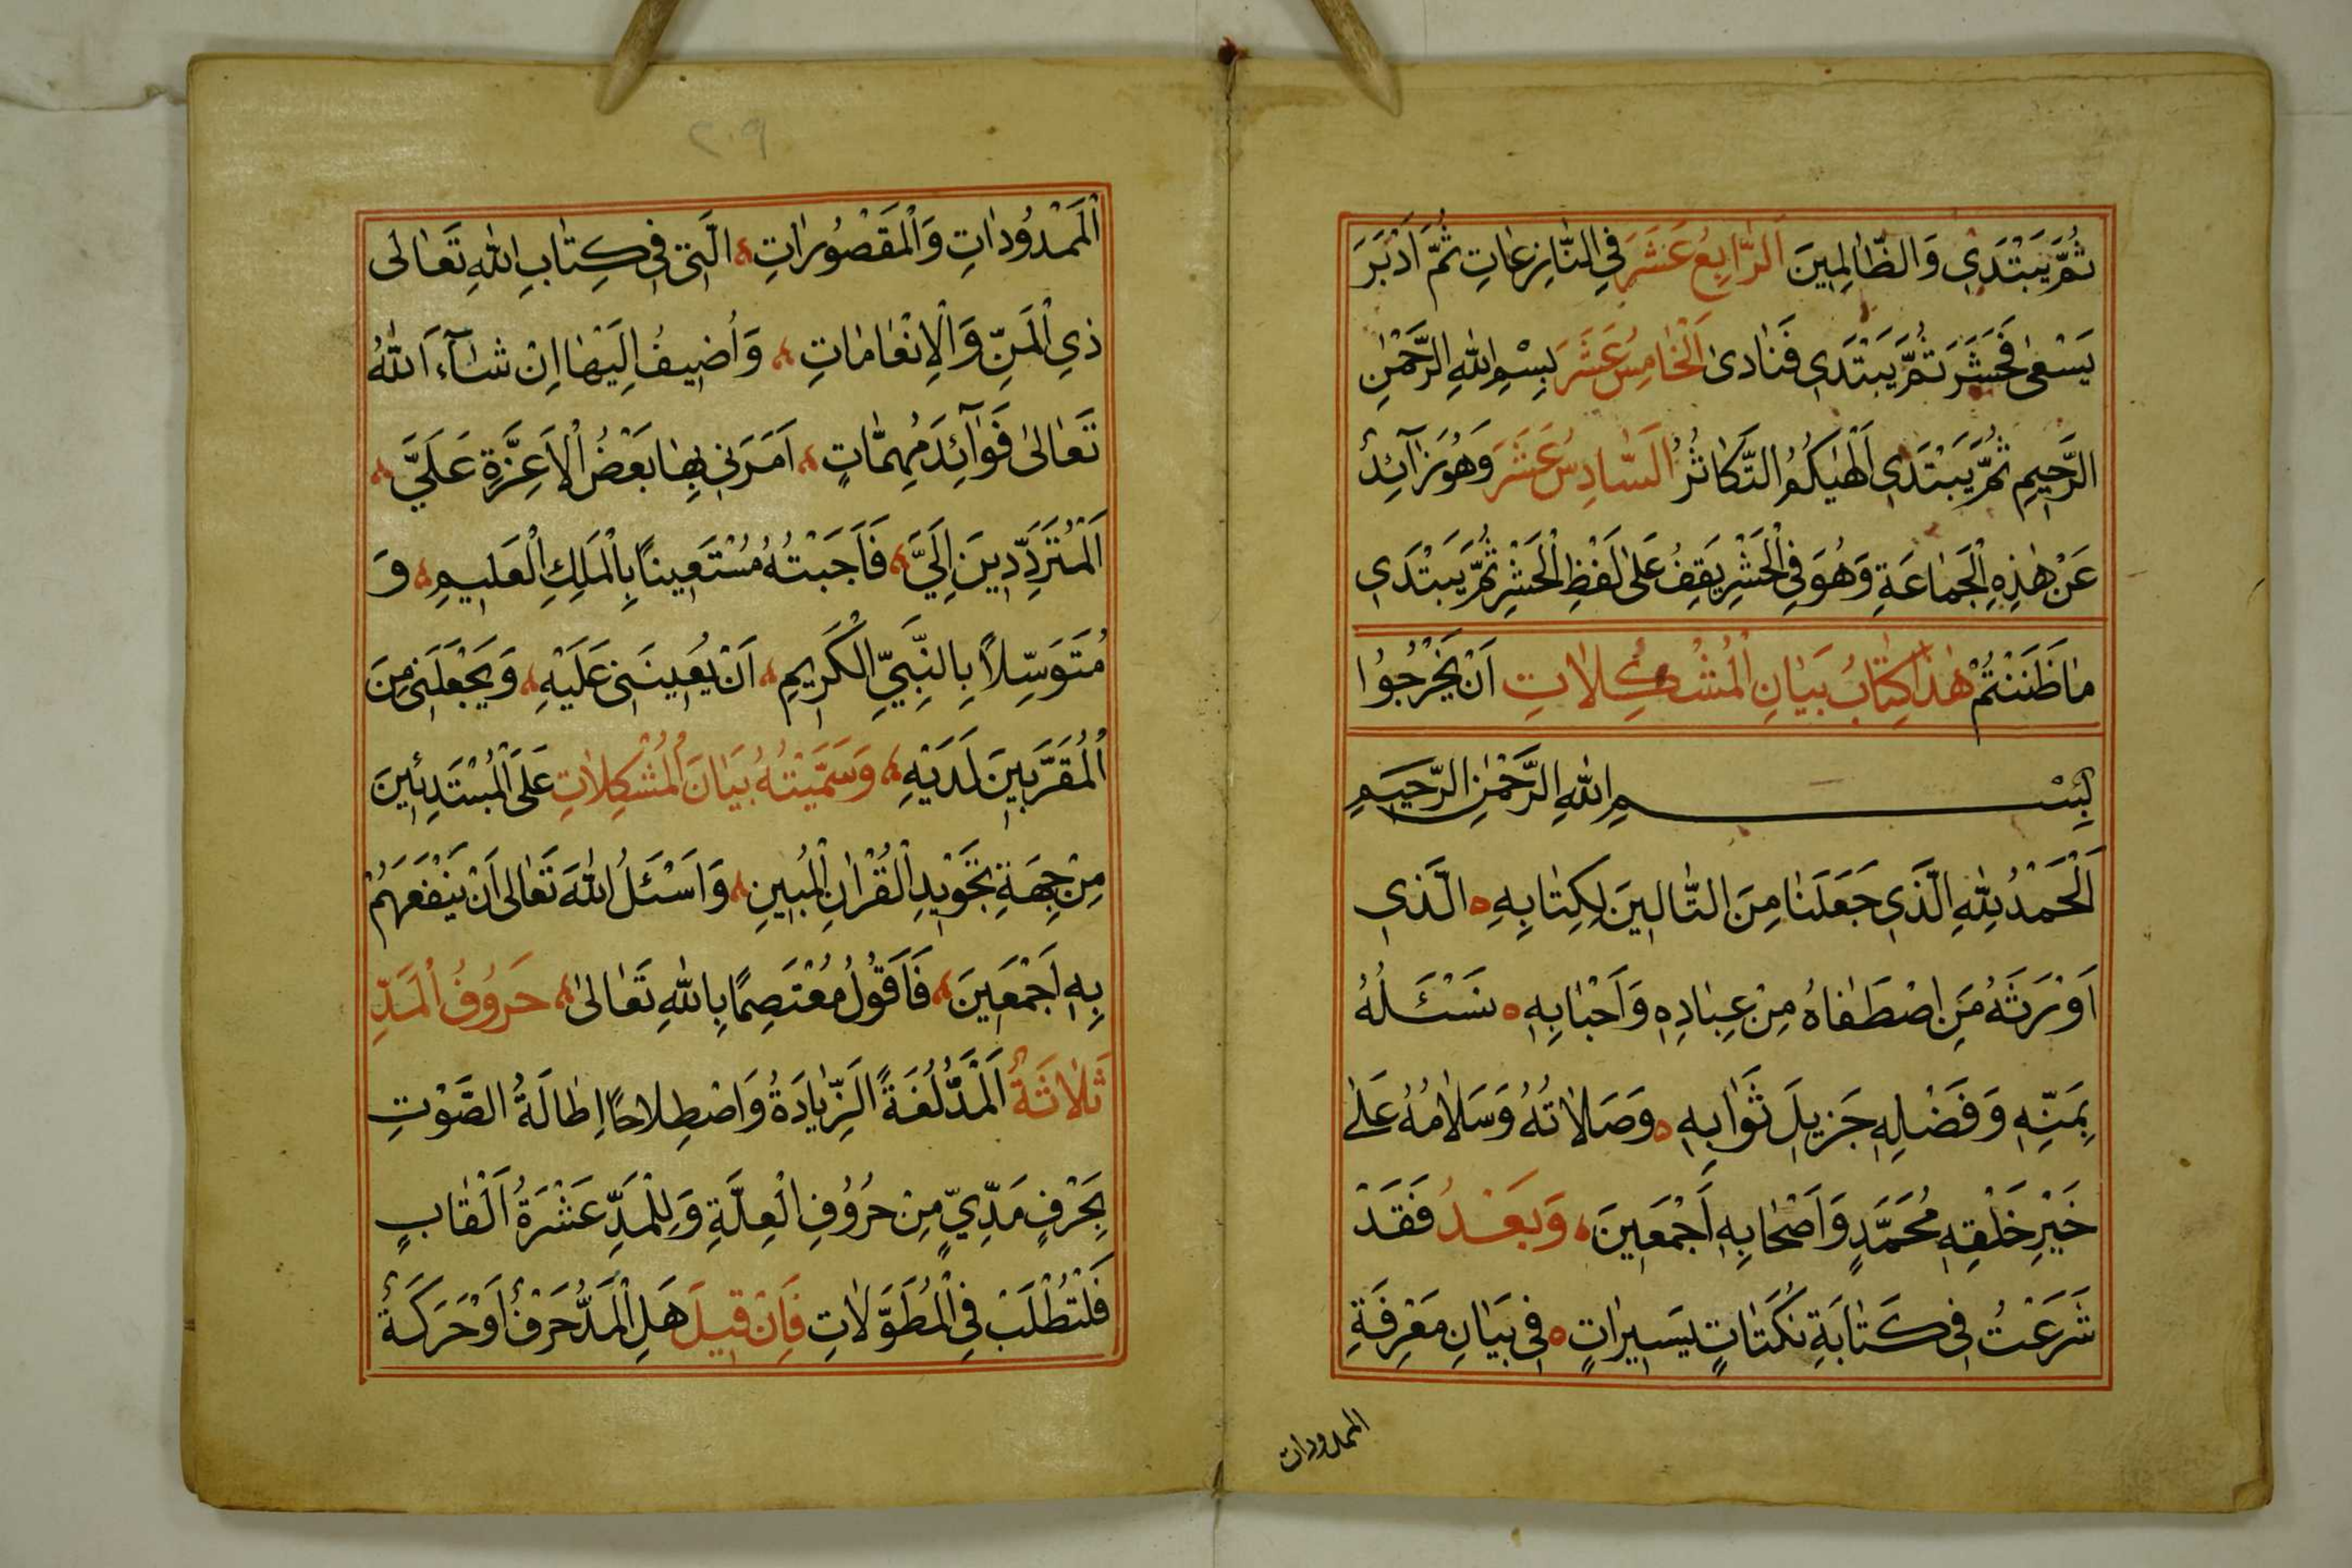 ثُمَّ يَبْتَدِي وَالظَّالِمِينَ اَلرَّابِعُ عَشَرَ فِي النَّازِعَاتِ ثُمَّ اَدْبَرَ
يَسْعٰى فَحَشَرَ ثُمَّ يَبْتَدِي فَنَادىٰ اَلْخَامِسُ عَشَرَ بِسْمِ اللهِ الرَّحْمٰنِ
الرَّحِيمِ ثُمَّ يَبْتَدِي اَلْهٰيكُمُ التَّكَاثُرُ اَلسَّادِسُ عَشَرَ وَهُوَ زَآئِدٌ
عَنْ هٰذِهِ الْجَمَاعَةِ وَهُوَ فِي الْحَشْرِ يَقِفُ عَلٰى لَفْظِ الْحَشْرِ ثُمَّ يَبْتَدِي
مَا ظَنَنْتُمْ هٰذَا كِتَابُ بَيَانِ الْمُشْكِلَاتِ اَنْ يَخْرُجُوا
بِسْمِ اللهِ الرَّحْمٰنِ الرَّحِيمِ
اَلْحَمْدُ لِلّٰهِ الَّذِي جَعَلَنَا مِنَ التَّالِينَ لِكِتَابِهِ ٥ الَّذِي
اَوْرَثَهُ مَنِ اصْطَفَاهُ مِنْ عِبَادِهِ وَاَحْبَابِهِ ٥ نَسْئَلُهُ
بِمَنِّهِ وَفَضْلِهِ جَزِيلَ ثَوَابِهِ ٥ وَصَلَاتُهُ وَسَلَامُهُ عَلٰى
خَيْرِ خَلْقِهِ مُحَمَّدٍ وَاَصْحَابِهِ اَجْمَعِينَ، وَبَعْدُ فَقَدْ
شَرَعْتُ فِي كَتَابَةِ نُكَتَاتٍ يَسِيرَاتٍ ٥ فِي بَيَانِ مَعْرِفَةِ
الممدودات
٢٠٩
اَلْمَمْدُودَاتِ وَالْمَقْصُورَاتِ، الَّتِي فِي كِتَابِ اللهِ تَعَالٰى
ذِي الْمَنِّ وَالْاِنْعَامَاتِ، وَاُضِيفُ اِلَيْهَا اِنْ شَآءَ اللهُ
تَعَالٰى فَوَآئِدَ مُهِمَّاتٍ، اَمَرَنِي بِهَا بَعْضُ الْاَعِزَّةِ عَلَيَّ،
اَلْمُتَرَدِّدِينَ اِلَيَّ، فَاَجَبْتُهُ مُسْتَعِينًا بِالْمَلِكِ الْعَلِيمِ، وَ
مُتَوَسِّلًا بِالنَّبِيِّ الْكَرِيمِ، اَنْ يُعِينَنِي عَلَيْهِ، وَيَجْعَلَنِي مِنَ
الْمُقَرَّبِينَ لَدَيْهِ، وَسَمَّيْتُهُ بَيَانَ الْمُشْكِلَاتِ عَلَى الْمُبْتَدِئِينَ
مِنْ جِهَةِ تَجْوِيدِ الْقُرْاٰنِ الْمُبِينِ، وَاَسْئَلُ اللهَ تَعَالٰى اَنْ يَنْفَعَهُمْ
بِهِ اَجْمَعِينَ، فَاَقُولُ مُعْتَصِمًا بِاللهِ تَعَالٰى، حُرُوفُ الْمَدِّ
ثَلَاثَةٌ اَلْمَدُّ لُغَةً اَلزِّيَادَةُ وَاصْطِلَاحًا اِطَالَةُ الصَّوْتِ
بِحَرْفٍ مَدِّيٍّ مِنْ حُرُوفِ الْعِلَّةِ وَلِلْمَدِّ عَشْرَةُ اَلْقَابٍ
فَلْتُطْلَبْ فِي الْمُطَوَّلَاتِ فَاِنْ قِيلَ هَلِ الْمَدُّ حَرْفٌ اَوْ حَرَكَةٌ